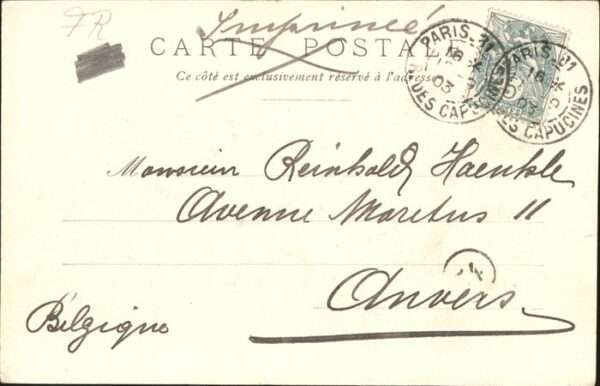 FR
Imprimé
CARTE POSTALE
Ce côté est exclusivement réservé à l'adresse
PARIS.31
16
03
R. DES CAPUCINES
PARIS.31
16
03
R. DES CAPUCINES
Monsieur Reinhold Haenkle
Avenue Moretus 11
Anvers
Belgique